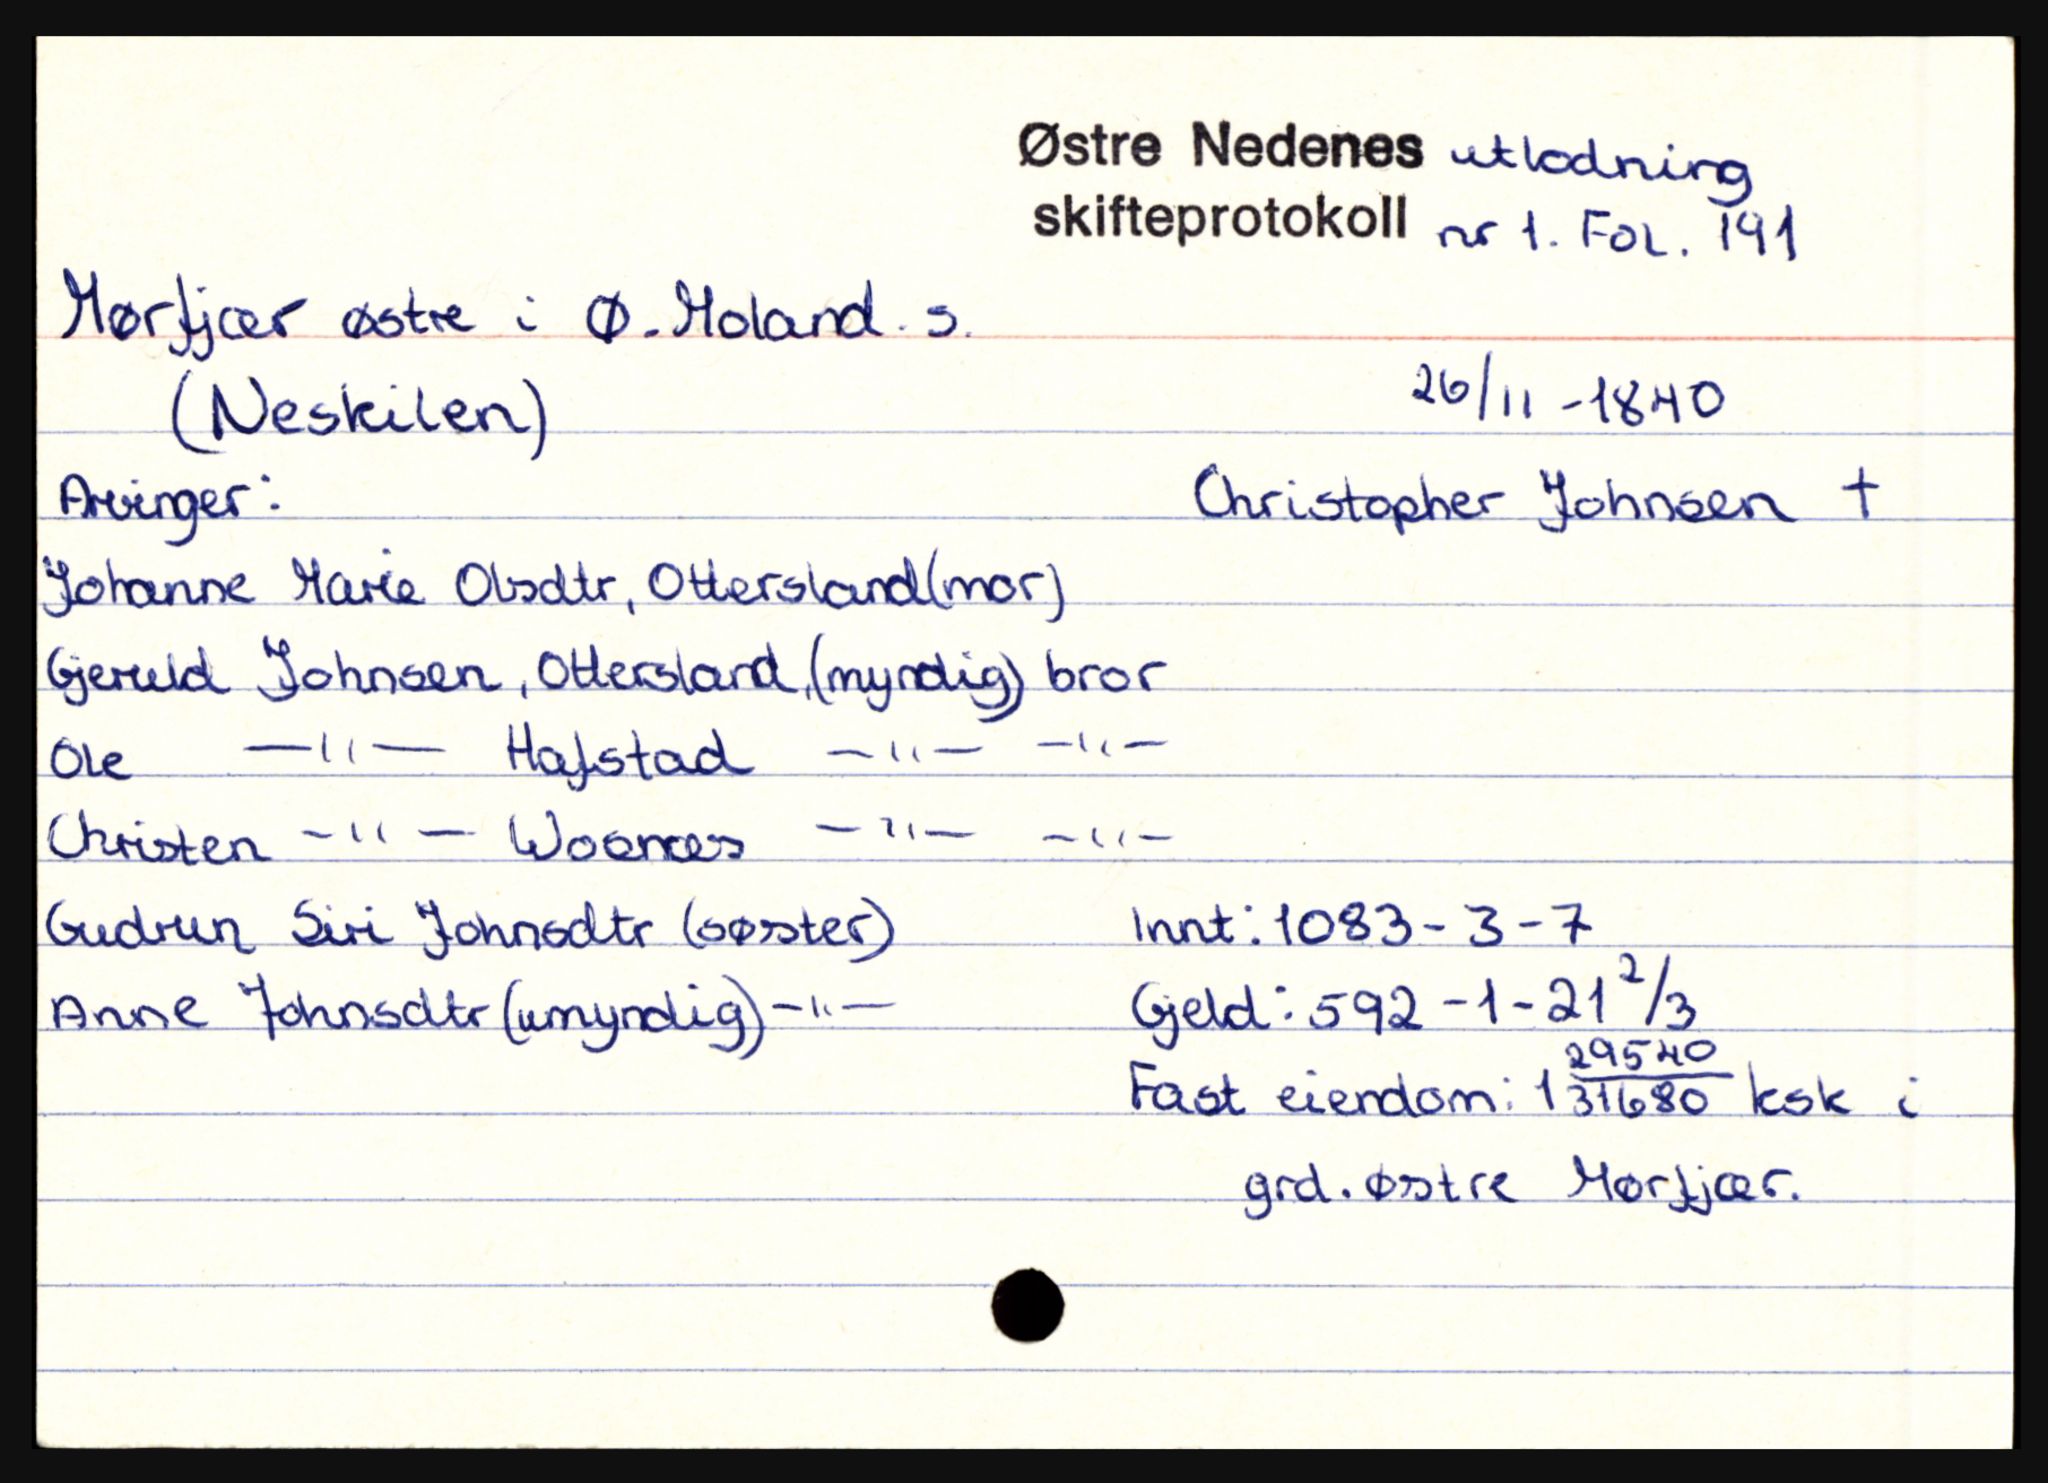 Østre Nedenes utlodning
skifteprotokoll nr 1. Fol. 191
Mørfjær østre i Ø. Moland. s.
(Neskilen)
26/11 - 1840
Arvinger:
Christopher Johnsen †
Johanne Marie Olsdtr, Ottersland (mor)
Gjeruld Johnsen, Ottersland, (myndig) bror
Ole —"— Hafstad —"— —"—
Christen —"— —"— —"—
Gudrun Siri Johnsdtr (søster)
Innt: 1083 - 3 - 7
Anne Johnsdtr (umyndig) —"—
Gjeld: 592 - 1 - 21 2/3
Fast eiendom: 1 29540/31680 ksk i
grd. østre Mørfjær.